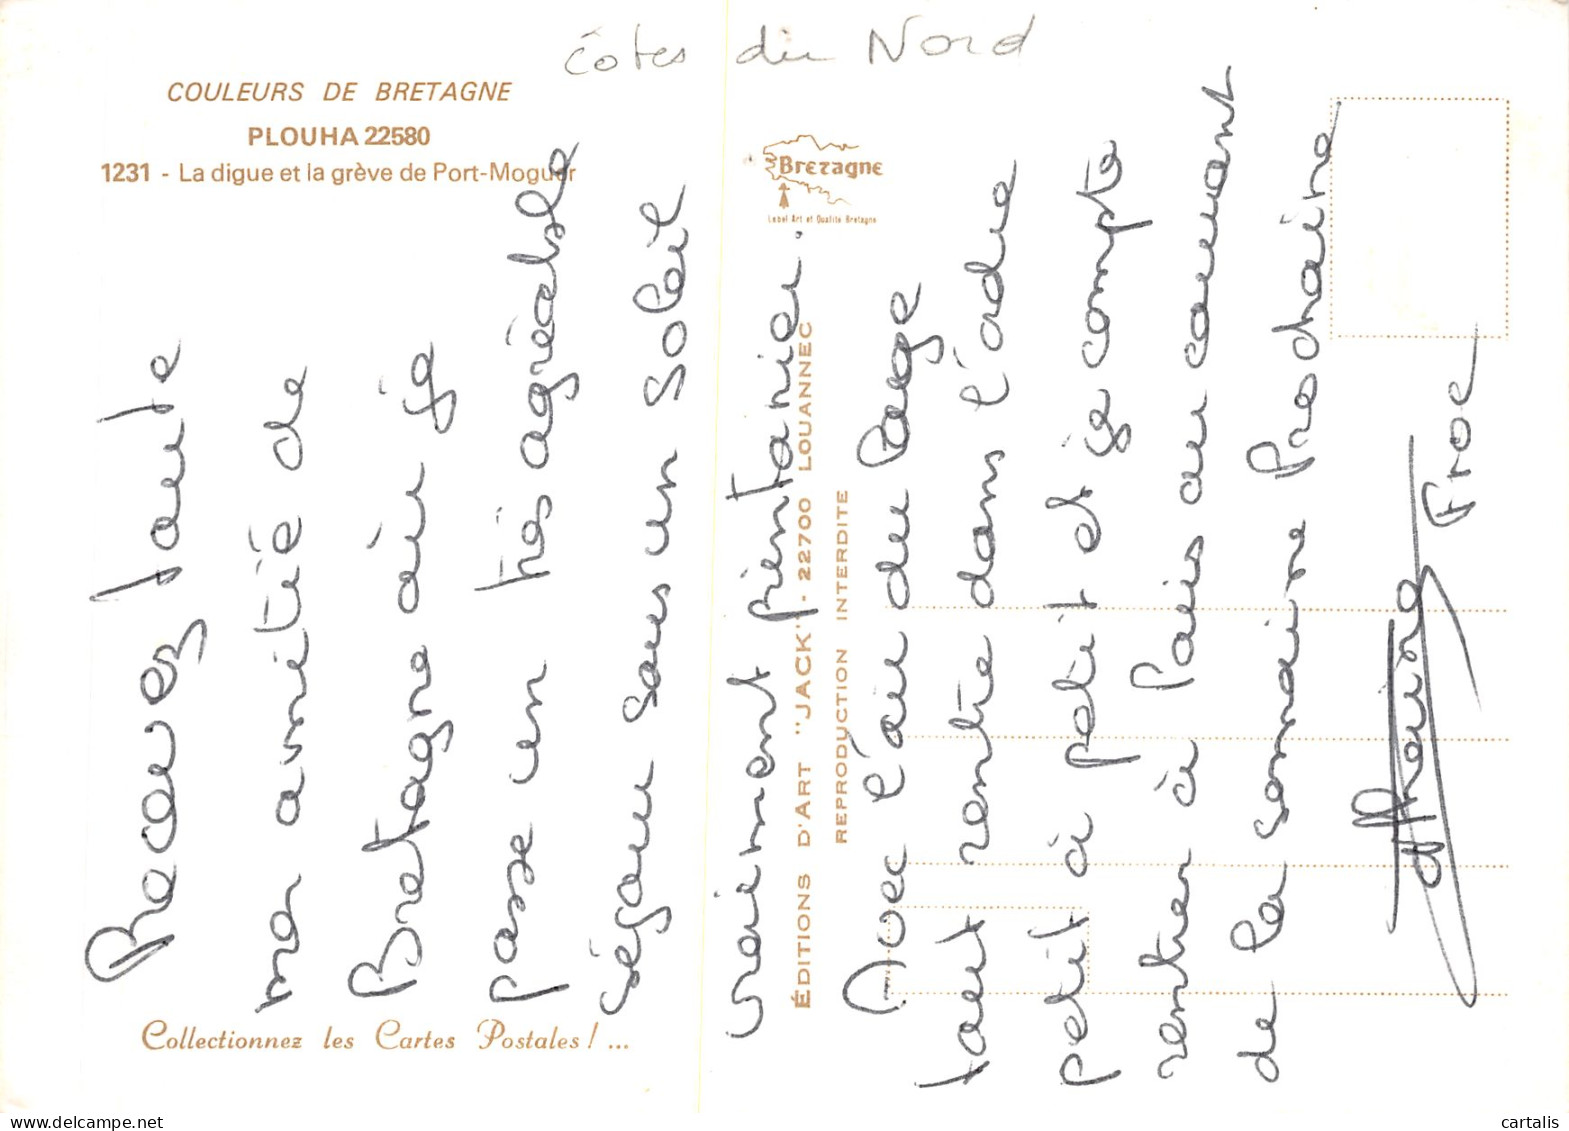 Côtes du Nord
COULEURS DE BRETAGNE
PLOUHA 22580
1231 - La digue et la grève de Port-Moguer
Bretagne
Label Art et Qualité Bretagne
Recevez toute
mon amitié de
Bretagne où je
passe un très agréable
séjour sous un soleil
vraiment printanier.
Avec l'air du large
tout rentre dans l'ordre
petit à petit et je compte
rentrer à Paris au courant
de la semaine prochaine
ÉDITIONS D'ART "JACK" - 22700 LOUANNEC
REPRODUCTION INTERDITE
Collectionnez les Cartes Postales ! ...
cartalis